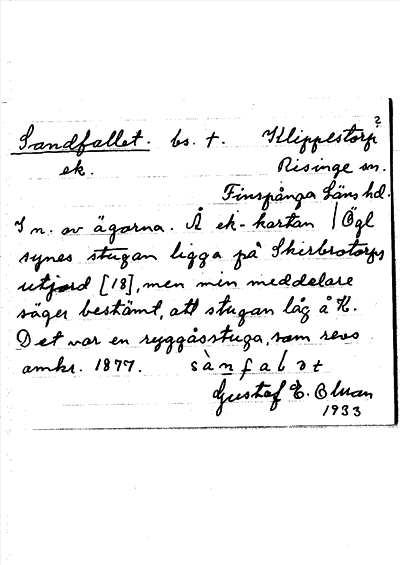 Sandfallet. bs. t. Klippestorp ?
ek. Risinge sn.
Finspånga läns hd.
I n. av ägorna. Å ek-kartan | Ögl
synes stugan ligga på Skirbrotorps
utjord [18], men min meddelare
säger bestämt, att stugan låg å K.
Det var en ryggåsstuga, som revs
omkr. 1877. sànfalət
Gustaf E. Olman
1933